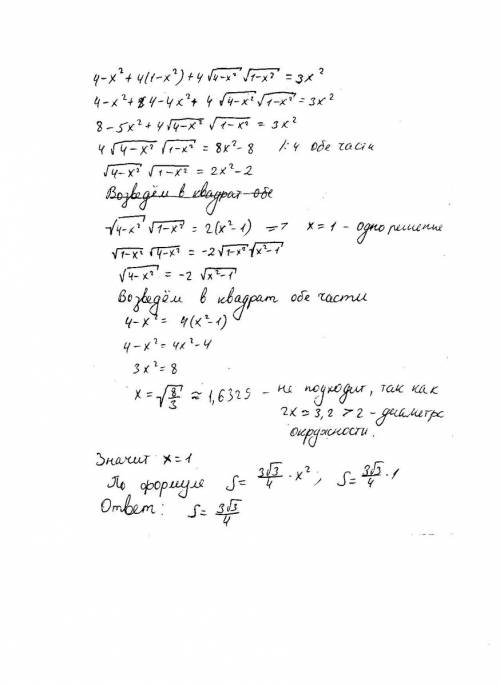 4-x² + 4(1-x²) + 4√4-x² √1-x² = 3x²
4-x² + 4-4x² + 4√4-x² √1-x² = 3x²
8-5x² + 4√4-x² √1-x² = 3x²
4√4-x² √1-x² = 8x²-8 /:4 обе части
√4-x² √1-x² = 2x²-2
Возведём в квадрат обе
√4-x² √1-x² = 2(x²-1) => x=1 - одно решение
√1-x² √4-x² = -2√1-x² √x²-1
√4-x² = -2√x²-1
Возведём в квадрат обе части
4-x² = 4(x²-1)
4-x² = 4x²-4
3x² = 8
x = √8/3 ≈ 1,6329 - не подходит, так как
2x ≈ 3,2 > 2 - диаметра
окружности.
Значит x=1
По формуле S = 3√3/4 · x²; S = 3√3/4 · 1
Ответ: S = 3√3/4